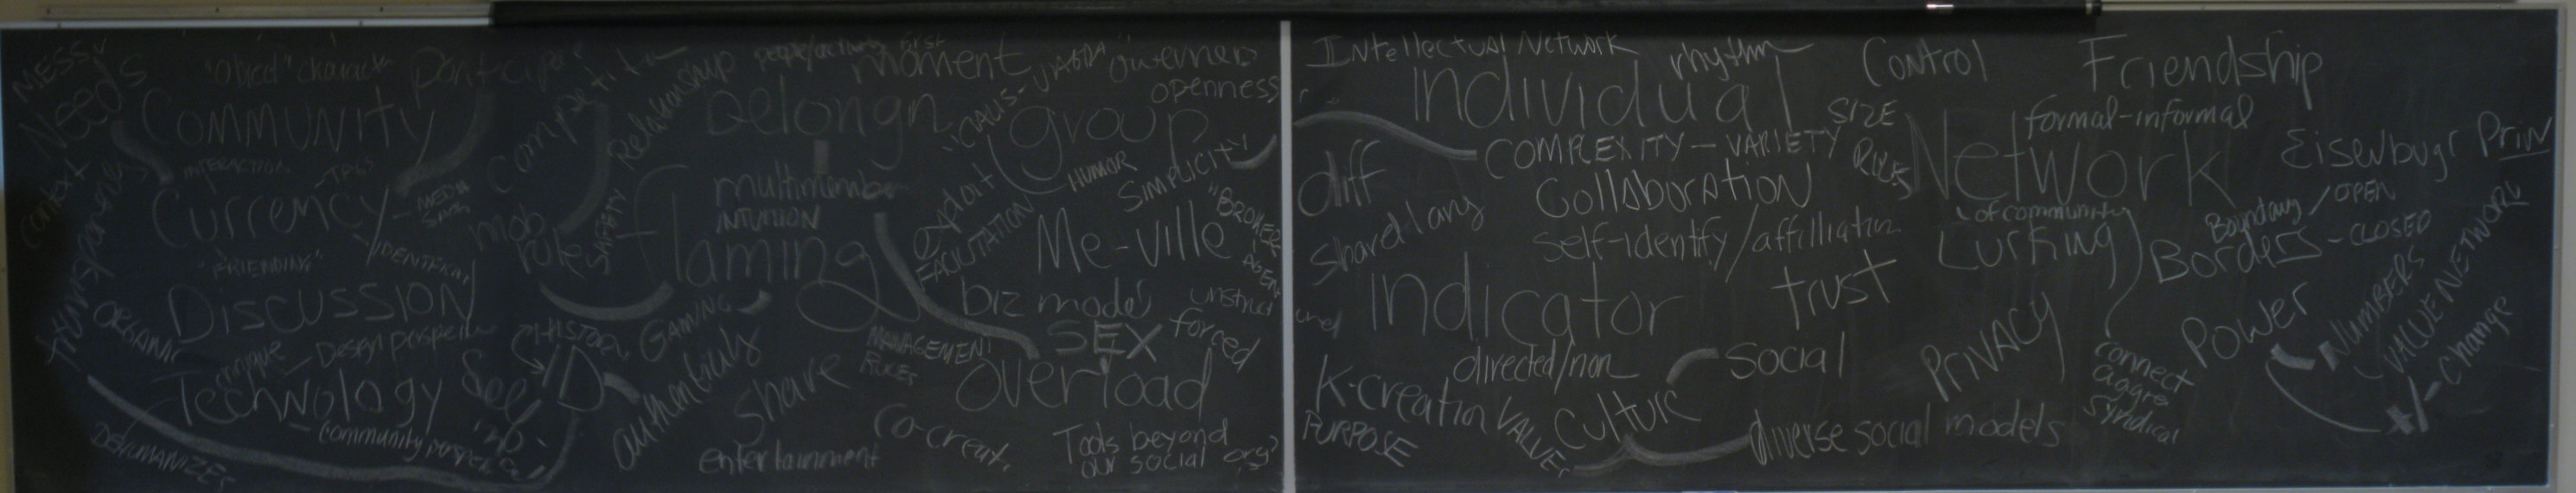 MESSY
Needs
"object" character
participa
COMMUNITY
INTERACTION
-TAGS
context
transparency
Currency
- MEDIA
"FRIENDING"
DISCUSSION
ORGANIC
critique
- Design perspective
Technology
- community perspective
DEHUMANIZES
Relationship
mob
rule
SAFETY
HISTORY
ID
GAMING
authenticity
share
entertainment
first
moment
Belongn
multimember
INTUITION
flaming
governance
openness
group
HUMOR
SIMPLICITY
exploit
FACILITATION
Me-ville
"BROKER"
AGENT
biz model
unstruct
SEX
forced
MANAGEMENT
RULES
overload
co-creat.
Tools beyond
our social org?
Intellectual Network
rhythm
Control
Friendship
Individual
SIZE
formal-informal
COMPLEXITY - VARIETY
RULES
Network
Eisenbugr Prin
diff
Collaboration
of community
shared lang
Self-identity/affilliation
Lurking
Boundary / OPEN
Borders - CLOSED
Indicator
trust
NUMBERS
VALUE NETWORK
+/- Change
Power
PRIVACY
directed/non
Social
connect
aggre
syndical
K-creation
VALUES
Culture
diverse social models
PURPOSE